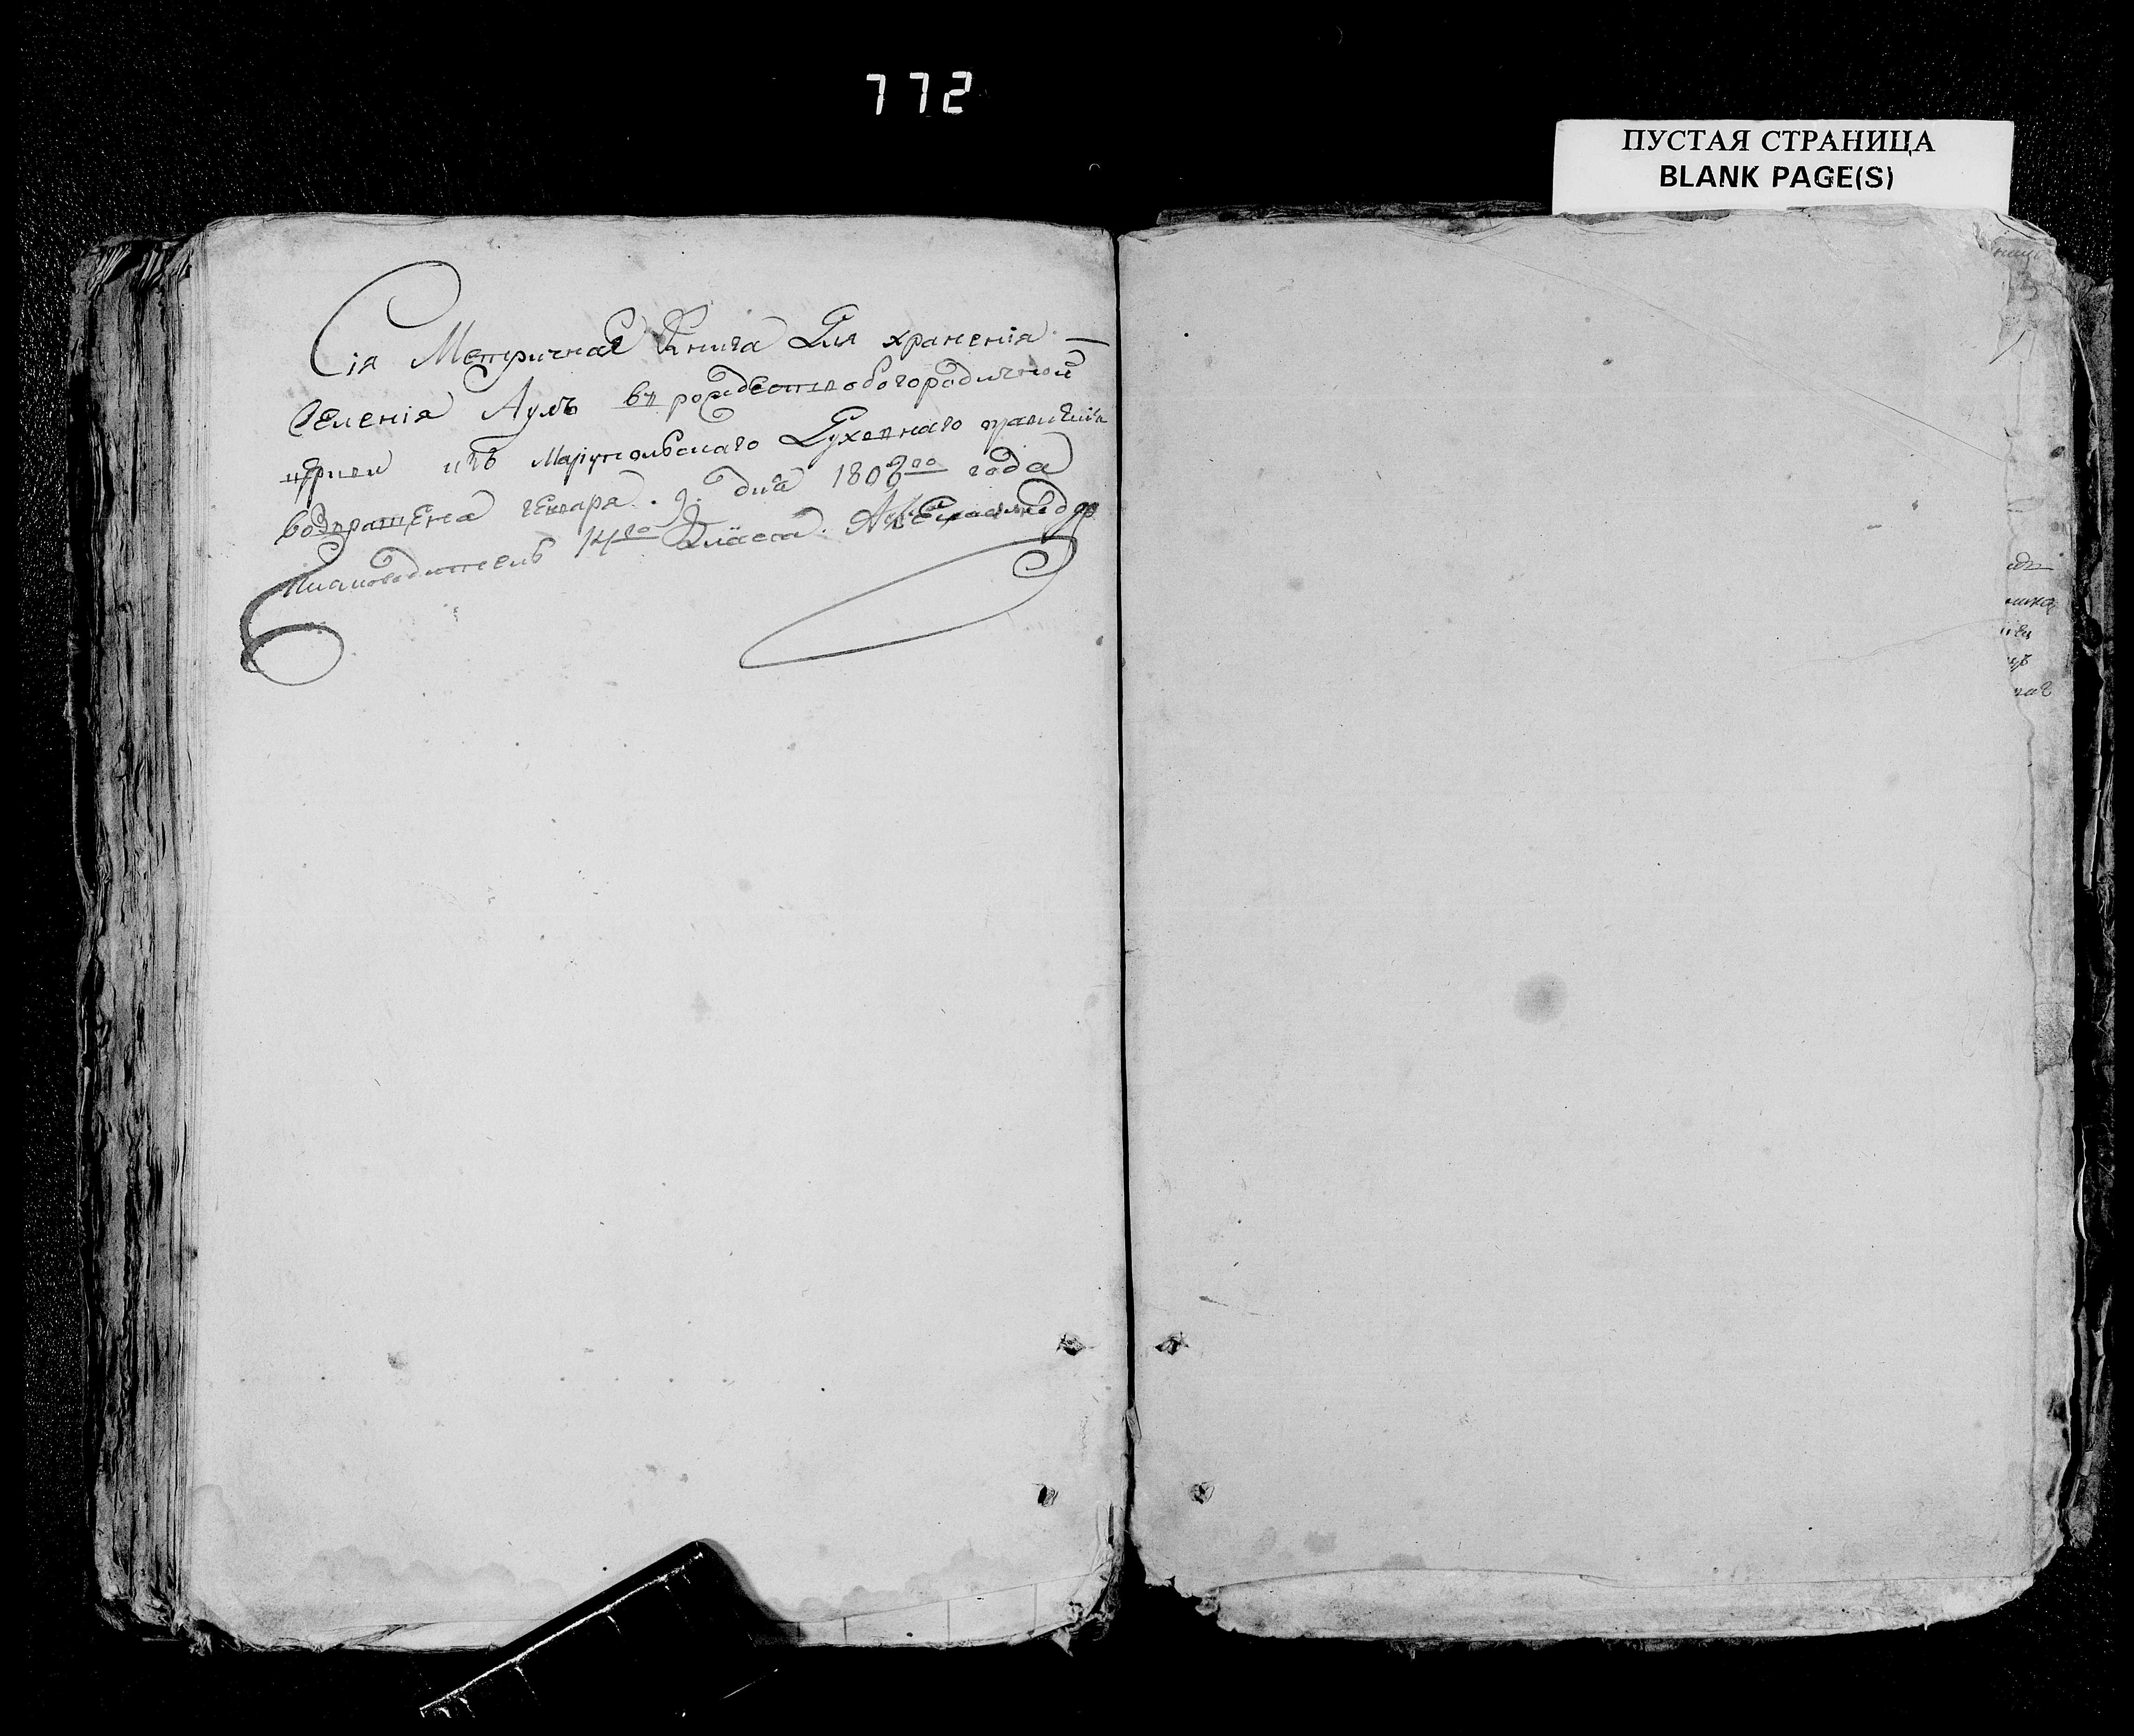 772
ПУСТАЯ СТРАНИЦА
BLANK PAGE(S)
Сія Метричная Книга Для храненія
Селенія въ рождествобогородичной
церкви изъ Маріупольскаго Духовнаго правленія
возвращена генваря 9. дня года
Письмоводитель 14го Класса